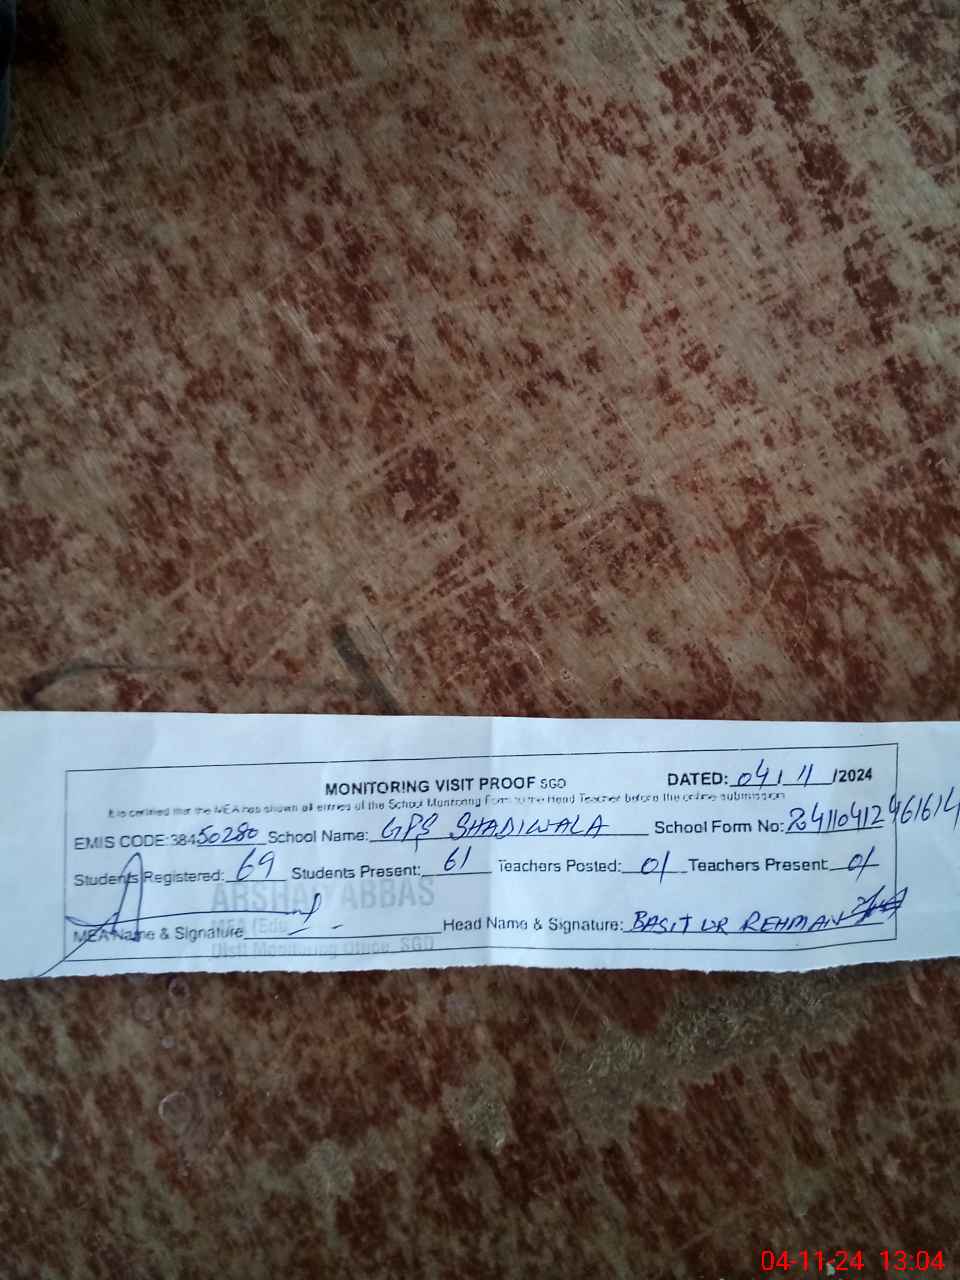 MONITORING VISIT PROOF SGD DATED: 04/11/2024
It is certified that the MEA has shown all entries of the School Monitoring Form to the Head Teacher before the online submission
EMIS CODE:38450280 School Name: GPS SHADIWALA School Form No: 24110412461614
Students Registered: 69 Students Present: 61 Teachers Posted: 01 Teachers Present: 01
ARSHAD ABBAS
MEA (Edu
MEA Name & Signature Head Name & Signature: BASIT UR REHMAN
Distt Monitoring Office, SGD
04-11-24 13:04